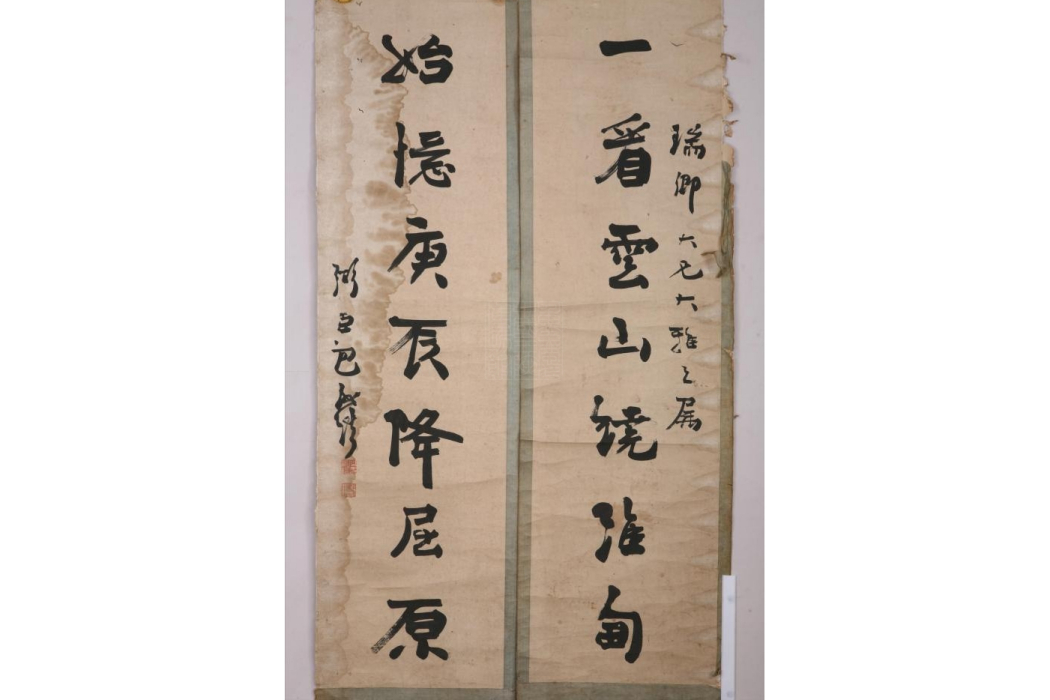 瑞卿大兄大雅之屬
一看雲山繞淮甸
始憶庚辰降屈原